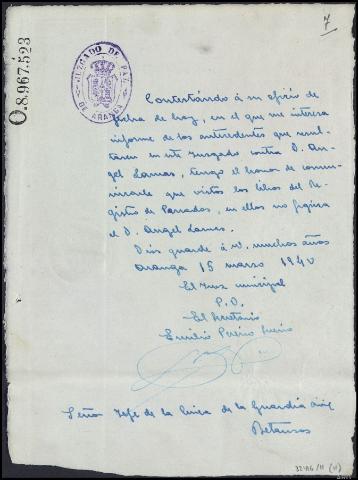 7
O.8.967.523
JUZGADO DE PAZ
DE ARANGA
Contestando á su oficio de
fecha de hoy, en el que me interesa
informe de los antecedentes que resul-
taren en este Juzgado contra D. An-
gel Lamas, tengo el honor de comu-
nicarle que vistos los libros del Re-
gistro de Penados, en ellos no figura
el D. Angel Lamas.
Dios guarde á V. muchos años
Aranga 15 marzo 1940
El Juez municipal
P.O.
El Secretario
Emilio Pereiro
Señor Jefe de la linea de la Guardia civil
Betanzos